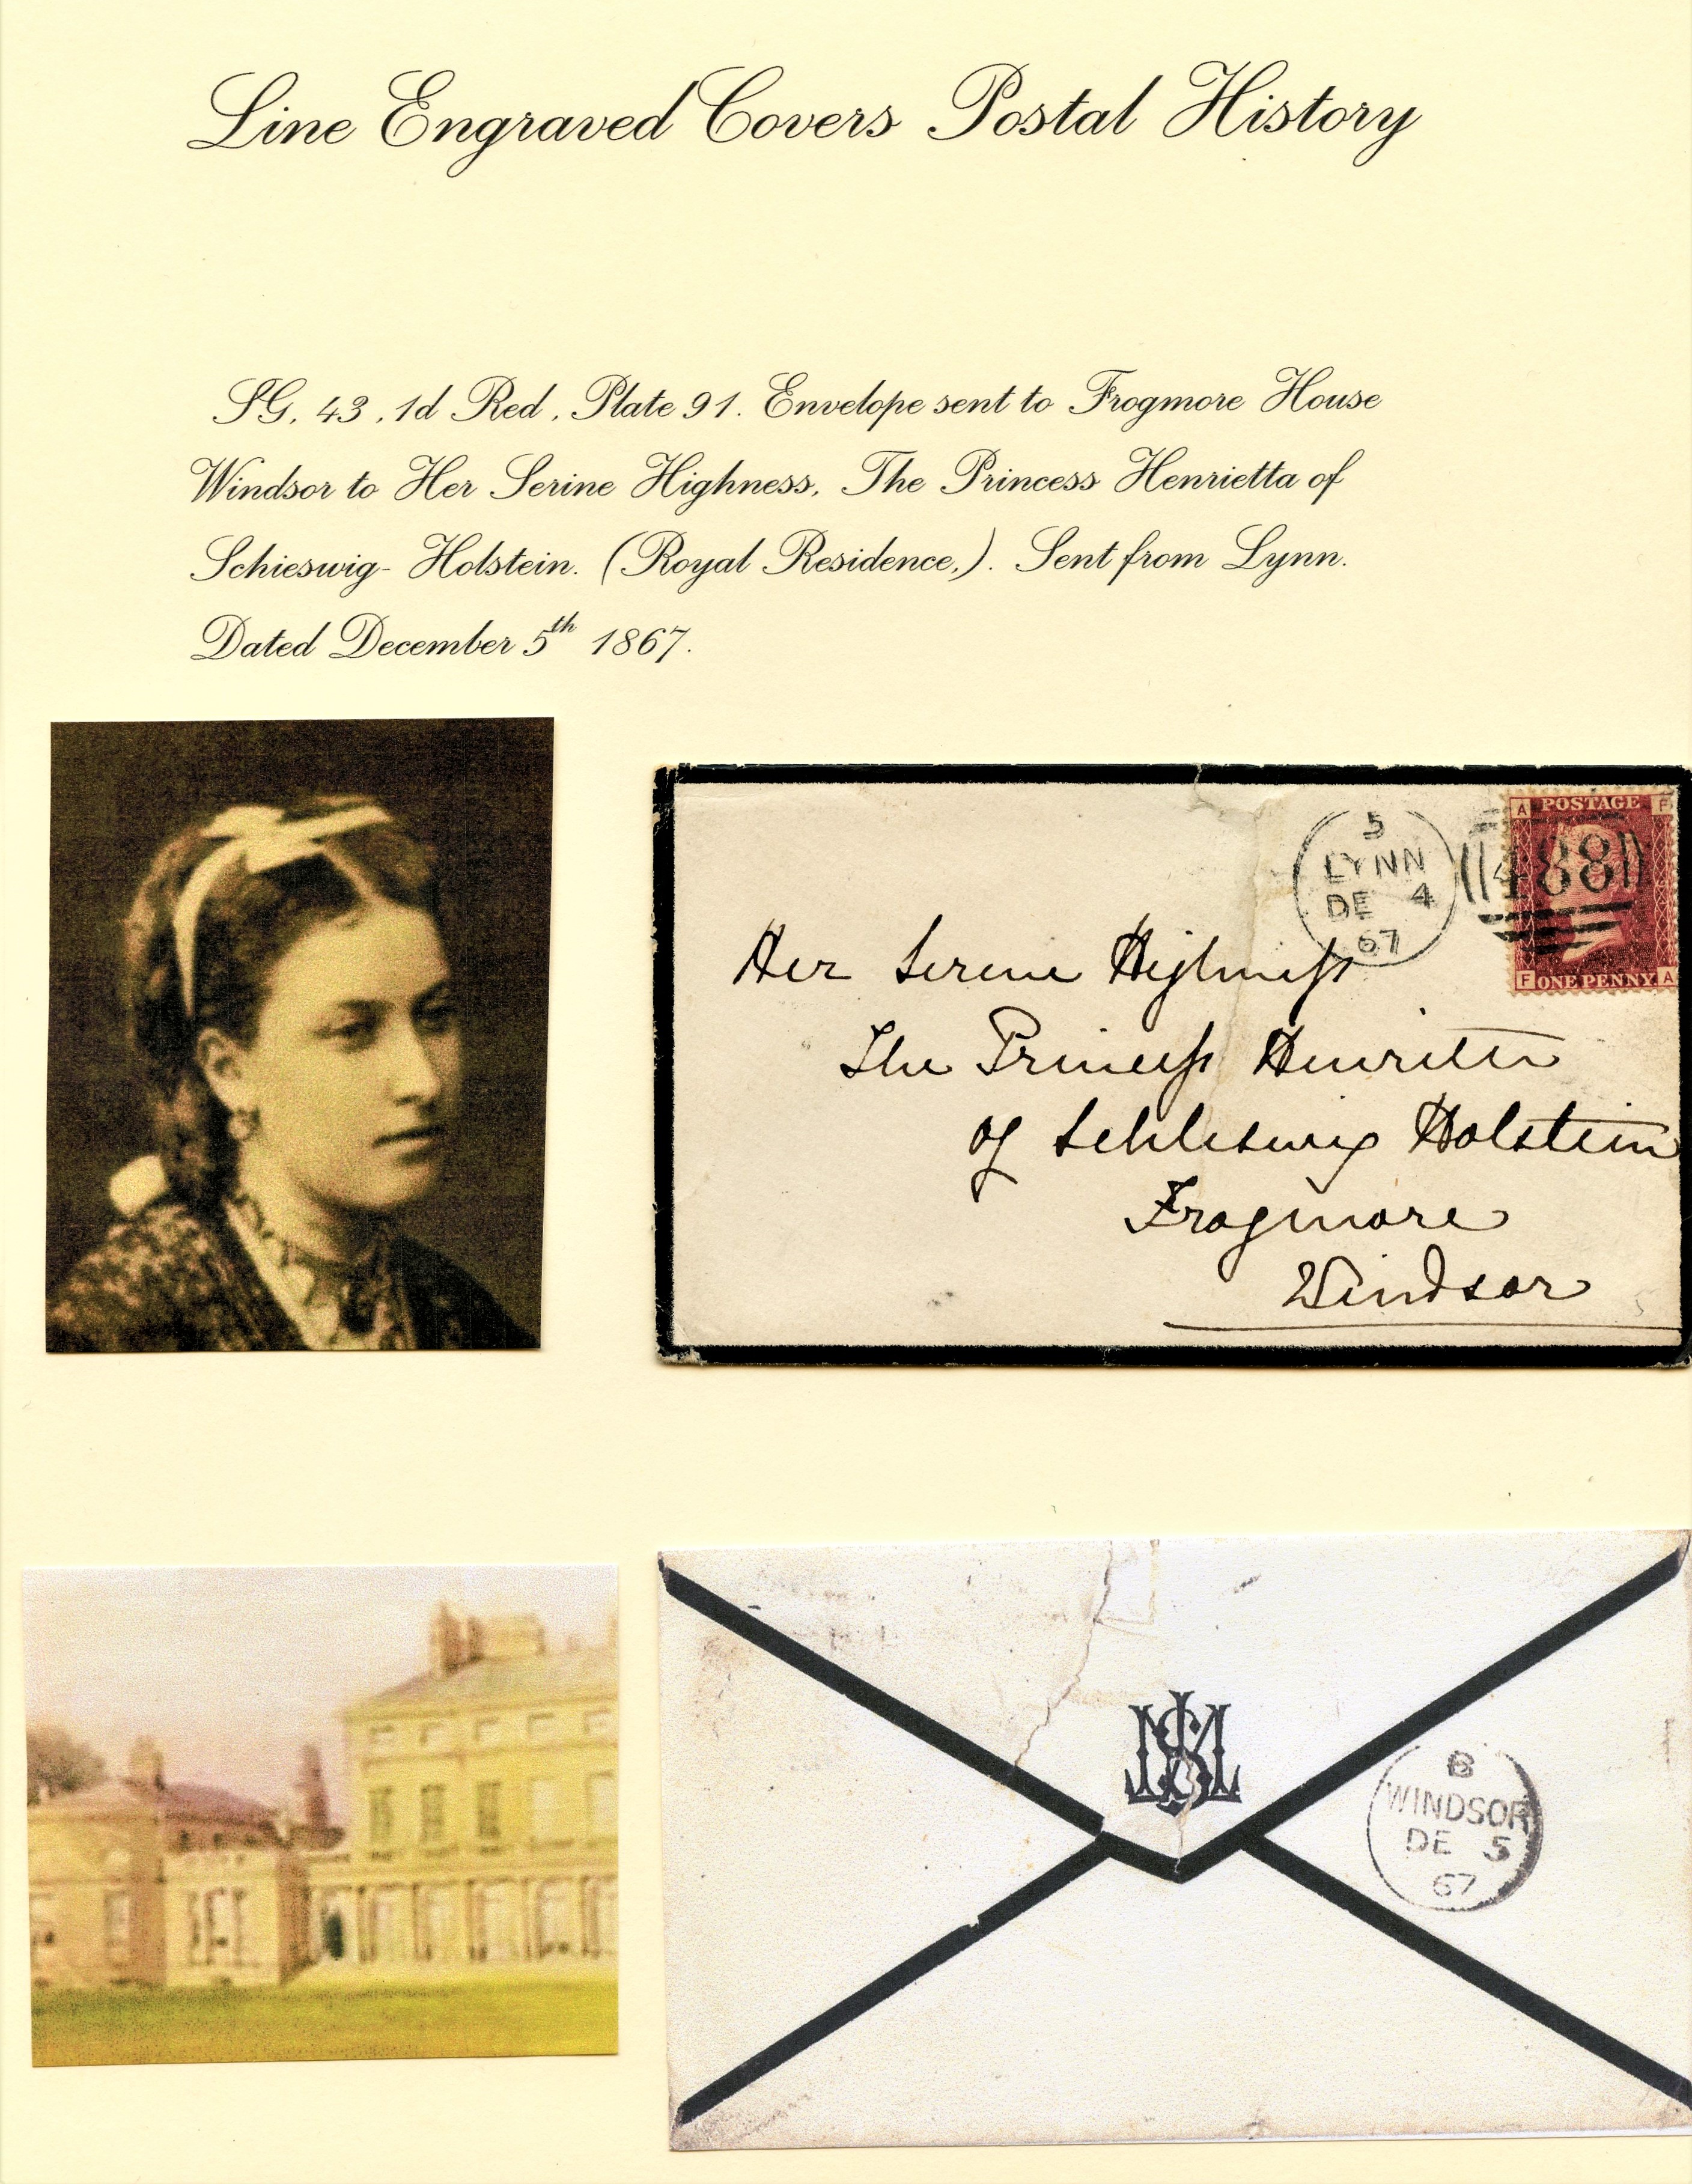 Line Engraved Covers Postal History
SG. 43 .1d Red . Plate 91. Envelope sent to Frogmore House
Windsor to Her Serine Highness. The Princess Henrietta of
Schieswig- Holstein. (Royal Residence,). Sent from Lynn.
Dated December 5th 1867.
5
LYNN
DE 4
67
A POSTAGE F
488
F ONE PENNY A
Her Serene Highness
The Princess Henrietta
of Schleswig Holstein
Frogmore
Windsor
B
WINDSOR
DE 5
67